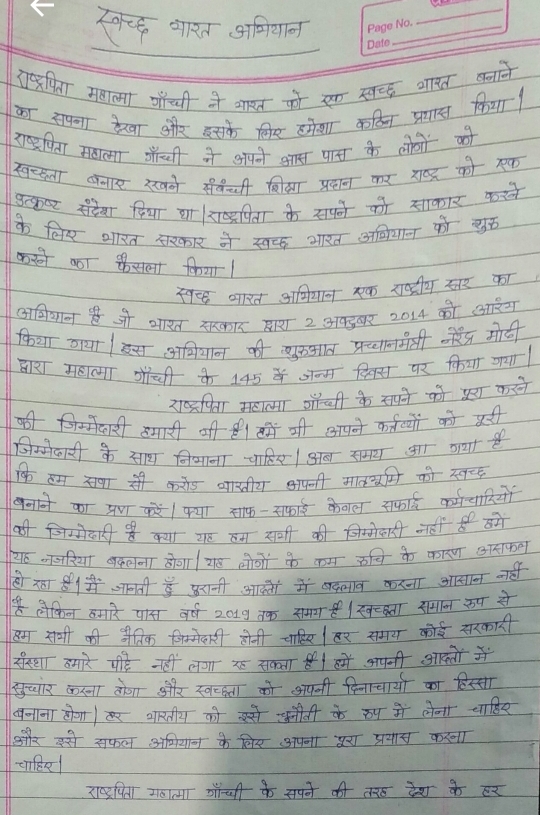 स्वच्छ भारत अभियान
Page No.
Date
राष्ट्रपिता महात्मा गाँधी ने भारत को एक स्वच्छ भारत बनाने
का सपना देखा और इसके लिए हमेशा कठिन प्रयास किया |
राष्ट्रपिता महात्मा गाँधी ने अपने आस पास के लोगों को
स्वच्छता बनाए रखने संबंधी शिक्षा प्रदान कर राष्ट्र को एक
उत्कृष्ट संदेश दिया था | राष्ट्रपिता के सपने को साकार करने
के लिए भारत सरकार ने स्वच्छ भारत अभियान को शुरू
करने का फैसला किया |
स्वच्छ भारत अभियान एक राष्ट्रीय स्तर का
अभियान है जो भारत सरकार द्वारा 2 अक्टूबर 2014 को आरंभ
किया गया | इस अभियान की शुरुआत प्रधानमंत्री नरेंद्र मोदी
द्वारा महात्मा गाँधी के 145 वें जन्म दिवस पर किया गया |
राष्ट्रपिता महात्मा गाँधी के सपने को पूरा करने
की जिम्मेदारी हमारी भी है | हमें भी अपने कर्तव्यों को पूरी
जिम्मेदारी के साथ निभाना चाहिए | अब समय आ गया है
कि हम सवा सौ करोड भारतीय अपनी मातृभूमि को स्वच्छ
बनाने का प्रण करें | क्या साफ-सफाई केवल सफाई कर्मचारियों
की जिम्मेदारी है क्या यह हम सभी की जिम्मेदारी नहीं है हमें
यह नजरिया बदलना होगा | यह लोगों के कम रुचि के कारण असफल
हो रहा है | मैं जानती हूँ पुरानी आदतों में बदलाव करना आसान नहीं
है लेकिन हमारे पास वर्ष 2019 तक समय है | स्वच्छता समान रूप से
हम सभी की नैतिक जिम्मेदारी होनी चाहिए | हर समय कोई सरकारी
संस्था हमारे पीछे नहीं लगा रह सकता है | हमें अपनी आदतों में
सुधार करना होगा और स्वच्छता को अपनी दिनाचार्या का हिस्सा
बनाना होगा | हर भारतीय को इसे चुनौती के रूप में लेना चाहिए
और इसे सफल अभियान के लिए अपना पूरा प्रयास करना
चाहिए |
राष्ट्रपिता महात्मा गाँधी के सपने की तरह देश के हर